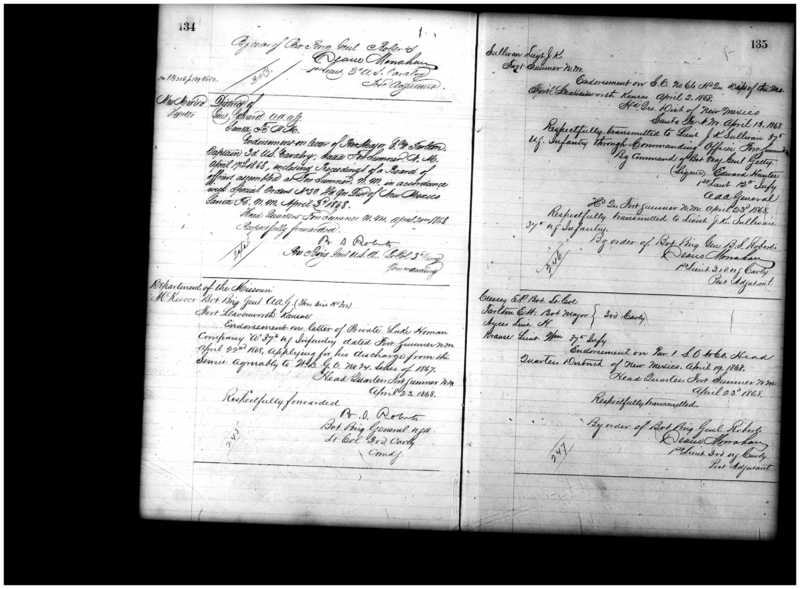 134
By order of Bvt Brig Genl Roberts
Deane Monahan
1st Lieut 3d U.S. Cavalry
Post Adjutant
New Mexico District of
Santa Fe N.M.
Endorsement on letter of
Captain 3d U.S. Cavalry, Fort Sumner N.M.
April 19th 1868, enclosing Proceedings of a Board of
officers assembled at Fort Sumner, N.M. in accordance
with Special Orders No 30 Hd Qrs Dist of New Mexico
Santa Fe, N.M. April 3d 1868.
Head Quarters Fort Sumner N.M. April 1868
Respectfully forwarded.
B. S. Roberts
Bvt Brig Genl U.S.A. Lt Col 3d Cavy
Commanding
Department of the Missouri
McKeever Bvt Brig Genl A.A.G. (Thro Dis N.M)
Fort Leavenworth Kansas
Endorsement on letter of Private Luke Homan
Company "D" 37th Inf Infantry dated Fort Sumner N.M.
April 22nd 1868, Applying for his discharge from the
Service Agreeably to G.O. No 24 Series of 1867.
Head Quarters Fort Sumner N.M.
April 23. 1868.
Respectfully forwarded
B. S. Roberts
Bvt Brig General U.S.A
Lt Col 3rd Cavly
Comdg
245
135
Sullivan Lieut J.K.
Fort Sumner N.M.
Endorsement on S.O. No 66 Hd Qrs Dept of the Mo.
Fort Leavenworth Kansas April 2. 1868.
Hd Qrs Dist of New Mexico
Santa Fe N.M. April 13. 1868
Respectfully transmitted to Lieut J.K. Sullivan 37th
Infantry through Commanding Officer Fort Sumner N.M.
By Command of Bvt Maj Genl Getty
(Signed) Edward Hunter
1st Lieut 12th Infty
A.A.A. General
Hd Qrs Fort Sumner N.M. April 23d 1868.
Respectfully transmitted to Lieut J.K. Sullivan
37th Infantry.
By order of Bvt Brig Gen B.S. Roberts
Deane Monahan
1st Lieut 3rd Cavly
Post Adjutant
246
Bvt Lt Col
Tarlton E.H. Bvt Major } 3rd Cavly
Lieut
Lieut Wm 37th Infy
Endorsement on Par 1 S.O. Head
Quarters District of New Mexico. April 19. 1868.
Head Quarters Fort Sumner N.M.
April 23d 1868.
Respectfully transmitted
By order of Bvt Brig Genl Roberts
Deane Monahan
1st Lieut 3rd Cavly
Post Adjutant
247